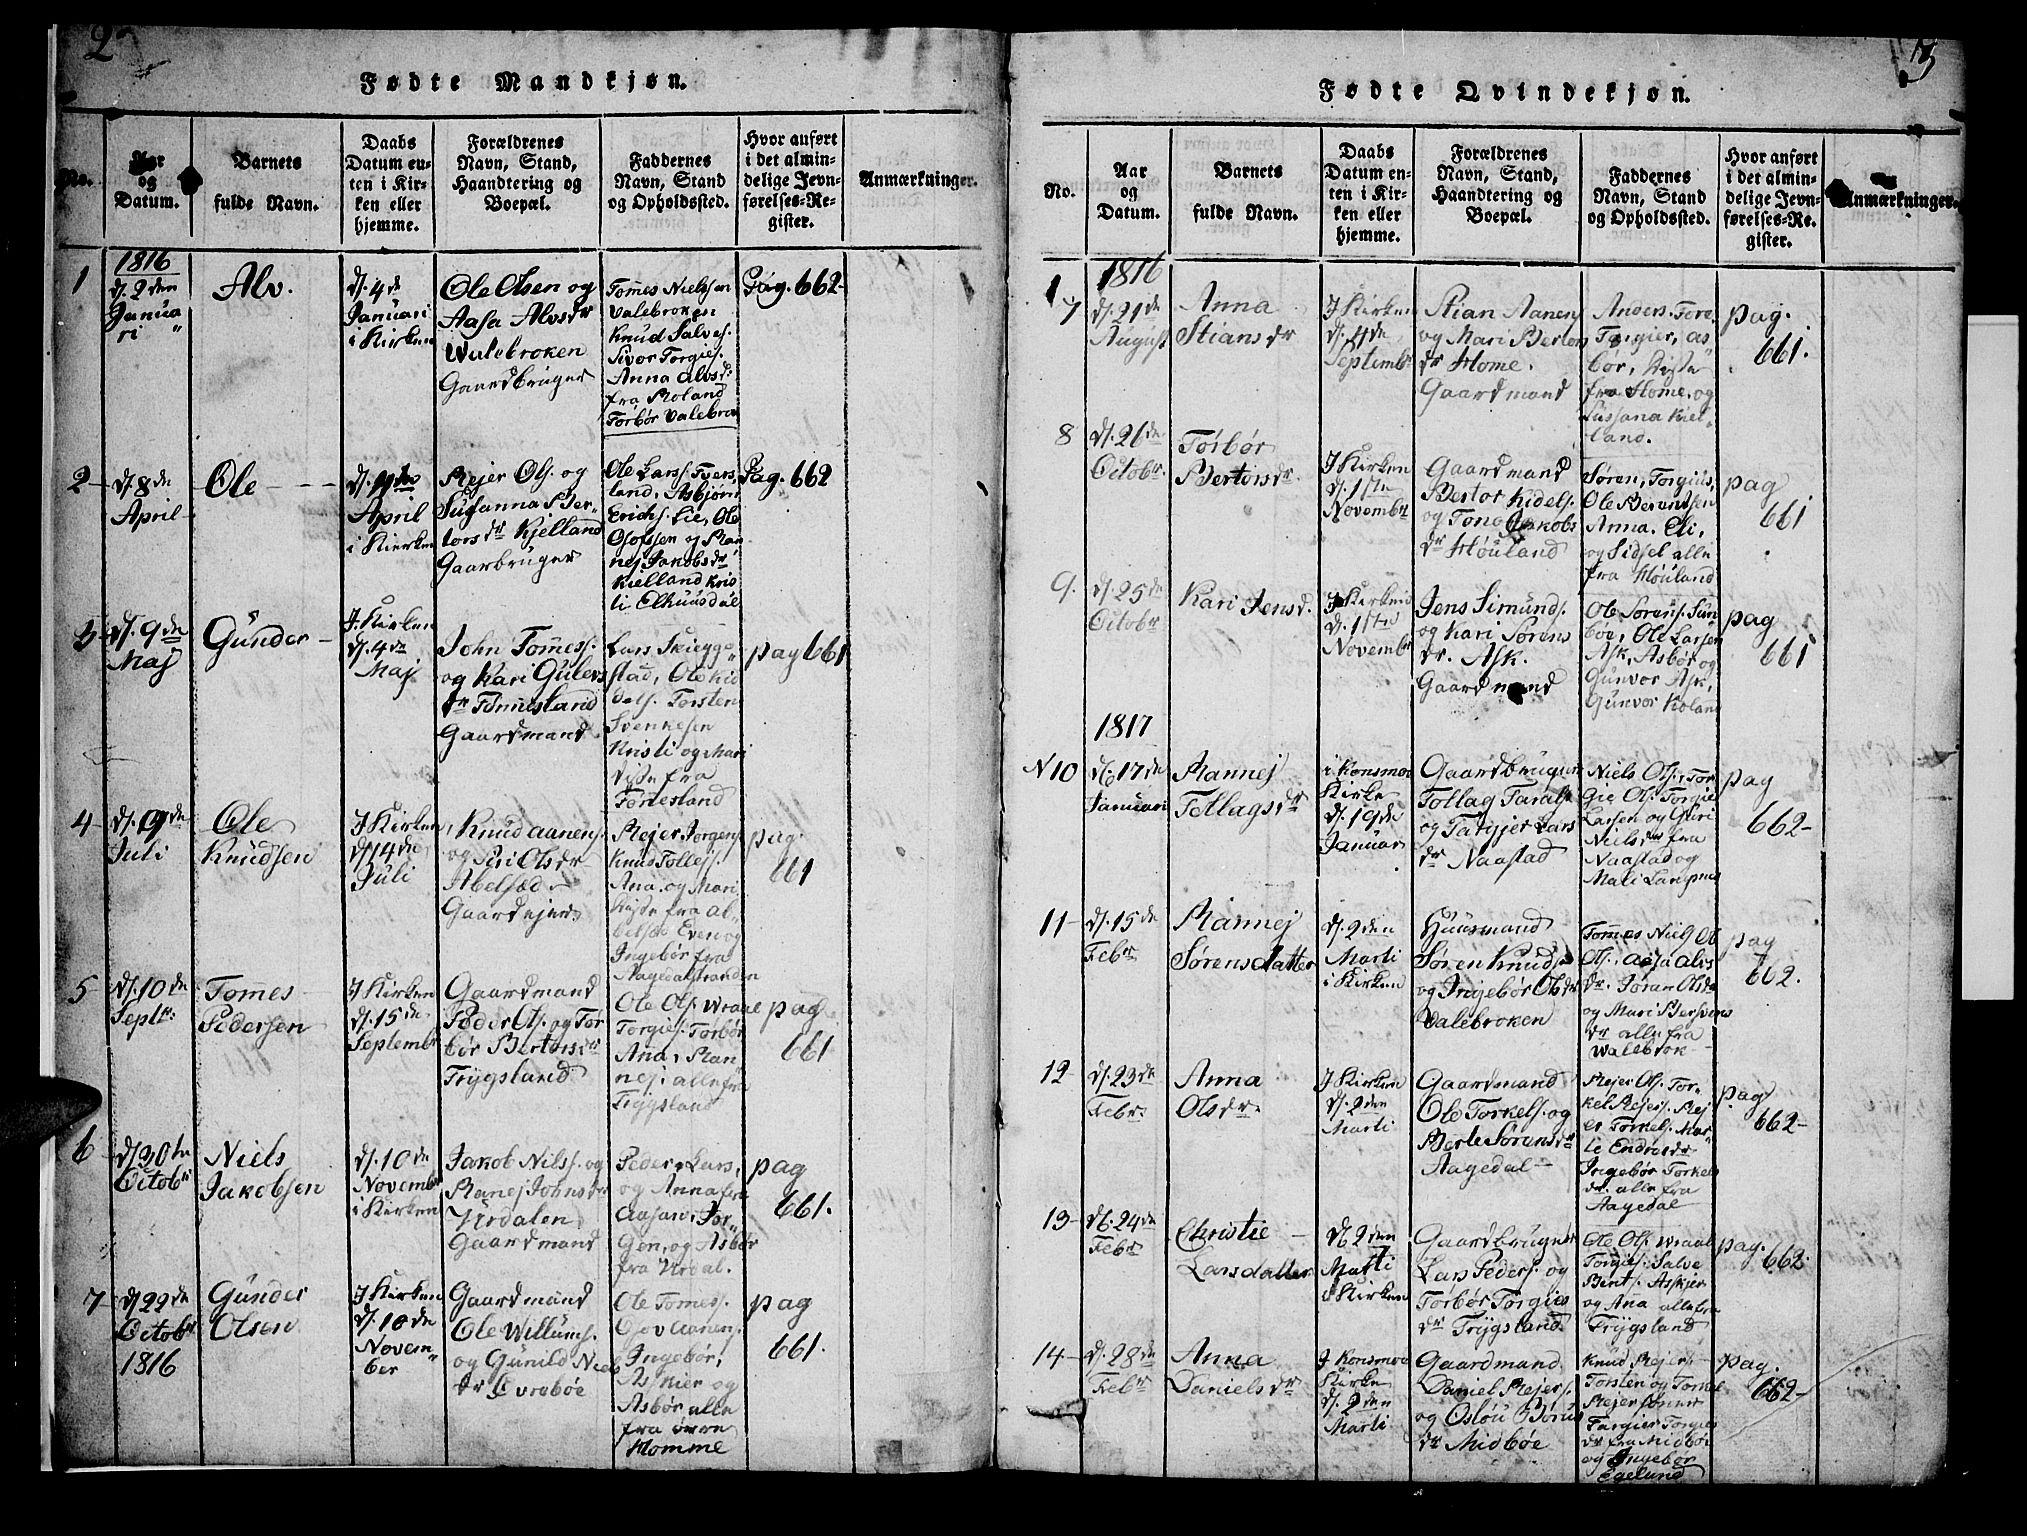 2
Fødte Mandkjøn.
No.
Aar
og
Datum.
Barnets
fulde Navn.
Daabs
Datum en-
ten i Kir-
ken eller
hjemme.
Forældrenes
Navn, Stand,
Haandtering og
Boepæl.
Faddernes
Navn, Stand
og Opholdssted.
Hvor anført
i det almin-
delige Jevn-
førelses-Re-
gister.
Anmærkninger.
1
1816
d. 2den
Janua
ri
Alv.
d. 4de
Januari
i Kirken
Ole Olsen og
Aasa Alvsdr
Walebroken
Gaardbruger
Tomes Nielssen
Valebroken
Knud Salves.
Sivor Torgies.
Anna Alvsd.
fra Roland
Torbør Valebro
Pag. 662
2
d. 8de
April
Ole
April
i Kierken
Rejer Ols. og
Susanna Ber-
torsdr Kjelland
Gaarbruger
Ole Larss.
land, Asbjørn
Erichs. Lie, Ole
Olsen og Ran
nej Jakobsdr
Kielland Kris
ti
Pag. 662
3
d. 9de
Maj
Gunder
J Kirken
d. 4de
Maj
John Tomess.
og Kari Gulevs
dr Tomesland
Gaardmand
Lars Skiegge
stad, Ole Kid
dels. Torsten
Svenkesen
Kristi og Mari
disse fra
Tomesland
pag 661
4
d. 9de
Juli
Ole
Knudsen
J Kirken
d. 14de
Juli
Knud Aanens.
og Siri Olsdr
Abelsæd
Gaardejer
Rejer Jorgens.
Knud Tollejs.
Ana og Mari
disse fra Al-
belsæ Even og
Ingebør fra
Aagedalstranden
pag.
661
5
d. 10de
Septr:
Tomes
Pedersen
J Kirken
d. 15de
Septembr
Gaardmand
Peder Ols. og Tor
bør Bertorsdr
Trygsland
Ole Ols. Wraal
Torgies. Torbør
Ana, Ran
nej, alle fra
Trygsland
pag
661
6
d. 30te
Octobr
Niels
Jakobsen
d. 10de
Novembr
i Kirken
Jakob Nilss. og
Ranej Johnsdr
Urdalen
Gaardmand
Peder Lars,
og Anna fra
Jor-
gen, og Asbør
fra Urdal.
pag
661.
7
d. 22de
Octobr
1816
Gunder
Olsen
J Kirken
d. 10de
Novem-
ber
Gaardmand
Ole Willums.
og Gunild Niels
dr Evrebøe
Ole Tomess.
Gjov Aanens.
Ingebør,
Askier og
Asbør alle
fra øvre
Homme
pag
661.
3
Fødte Qvindekjøn.
No.
Aar
og
Datum.
Barnets
fulde Navn.
Daabs
Datum en-
ten i Kir-
ken eller
hjemme.
Forældrenes
Navn, Stand,
Haandtering og
Boepæl.
Faddernes
Navn, Stand
og Opholdssted.
Hvor anført
i det almin-
delige Jevn-
førelses-Re-
gister.
Anmærkninger.
1816
7
d. 21de
August
Anna
Stiansdr
J Kirken
d. 4de
Septembr
Stian Aanens
og Mari Bertors
dr Home.
Gaardmand
Anders. Tore
Torgier, As
bør, disse
fra Home, og
Sussana Kiel
land.
pag.
661.
8
d. 26de
Octobr
Torbør
Bertorsdr
J Kirken
d. 1ste
Novembr
Gaardmand
Bertor Kidels.
og Tone Jakobs
dr Houland
Søren, Torgius,
Ole Berentsen
Anna. Eli,
og Sidsel alle
fra Houland
pag
661
9.
d. 25de
Octobr
Kari Jensd.
J Kirken
d. 1ste
Novembr
Jens Simunds.
og Kari Sørens
dr. Ask.
Gaardmand
Ole Sørens. Sun
bøe, Ole Larsen
Ask, Asbør og
Gunvor Ask,
Gunvor Roland
pag
661
1817
N 10
d. 17de
Januari
Rannej
Tollagsdr
i Konsmoe
Kirke
d. 19de
Januar
Gaardbruger
Tollag Tarals.
og Targjer Lars
dr Naastad
Niels Ols. Tor
Gie Ols. Torgie
Larsen og Guri
Nielsdr fra
Naastad og
Mali
pag
662
11
d. 15de
Febr
Rannej
Sørensdatter
d. 2den
Marti
i Kirken
Huusmand
Søren Knuds.
og Ingebør Olsdr
Valebroken
Tomes Niels Ol
Ols. Aasa Alvs
dr. Joran Olsdr
og Mari Berssens
dr alle fra
Walebrok
pag
662.
12
d. 23de
Febr.
Anna
Olsdr.
J Kirken
d. 2den
Marti
Gaardmand
Ole Torkels. og
Berte Sørensdr
Aagedal
Rejer Ols. Tor-
kel Rejers. Rej
er Torkels. Mar-
te Endresdr
Ingebør Torkels
dr. alle fra
Aagedal
pag
662
13
d. 24de
Febr
Christie
Larsdatter
d. 2den
Marti
i Kirken
Gaardbruger
Lars Peders. og
Torbør Torgies
dr Trygsland
Ole Ols. Wraal
Torgies. Salve
Bent. Askier
og Ana alle fra
Trygsland
pag.
662
14
d. 28de
Febr
Anna
Danielsdr
J Konsmoe
Kirke
d. 2den
Marti
Gaardmand
Daniel Rejers.
og Oslou Børus
dr Midbøe
Knud Rejer
Torsten og Torkel
Rejersønner
Targier Torgies
dr fra Midbøe
og Ingebør
Egeland
pag.
662